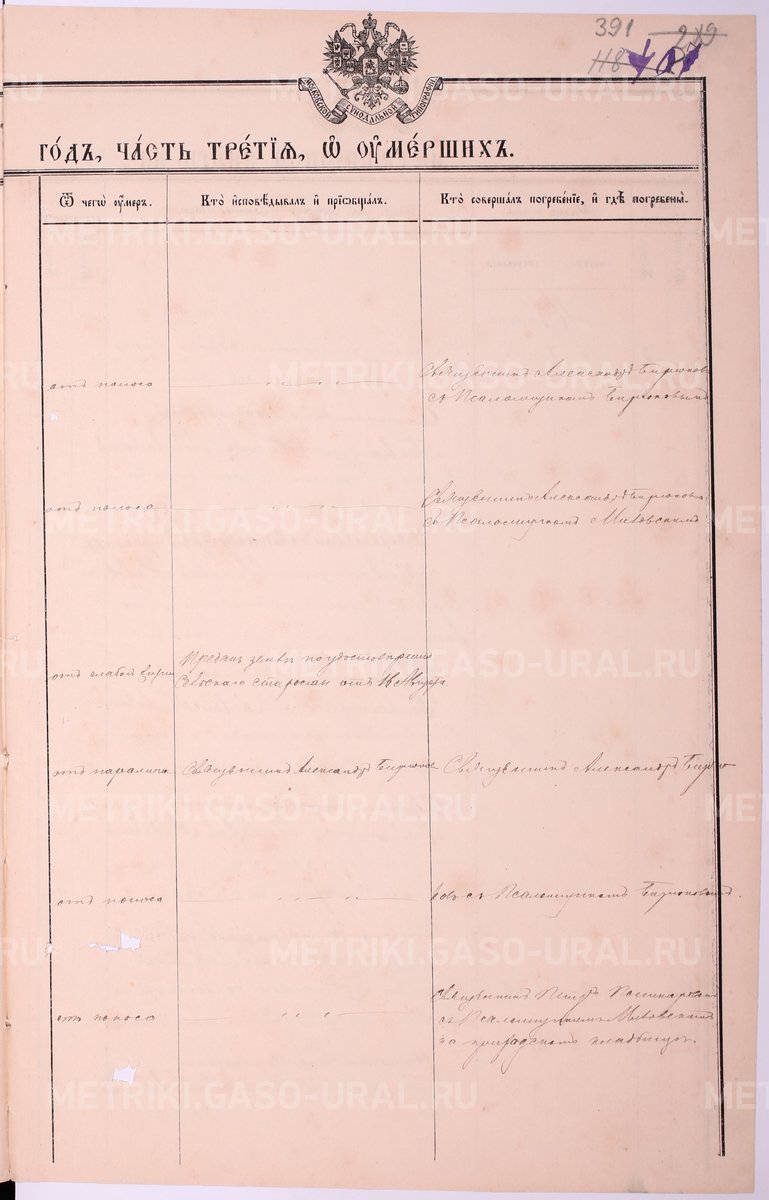 391
МОСКОВСКОЙ СѴНОДАЛЬНОЙ ТИПОГРАФІИ
го́дъ, ча́сть тре́тїѧ, ѡ҆ ᲂу҆ме́ршихъ.
Ѿ чегѡ̀ ᲂу҆́меръ.
Кто̀ и҆сповѣ́дывалъ и҆ прїѡбща́лъ.
Кто̀ соверша́лъ погребе́нїе, и҆ гдѣ̀ погребены̀.
отъ поноса
Священникъ Александръ Бирюков
съ Псаломщикомъ Бирюковымъ
отъ поноса
Священникъ Александръ Бирюков
съ Псаломщикомъ
отъ слабой
Преданъ землѣ по удостовѣрению
старосты отъ 16
отъ паралича
Священникъ Александръ Бирюков
Священникъ Александръ Бирю
отъ поноса
ковъ съ Псаломщикомъ Бирюковымъ.
отъ поноса
Священникъ Петръ
съ Псаломщикомъ
на приходскомъ кладбищѣ.
METRIKI.GASO-URAL.RU